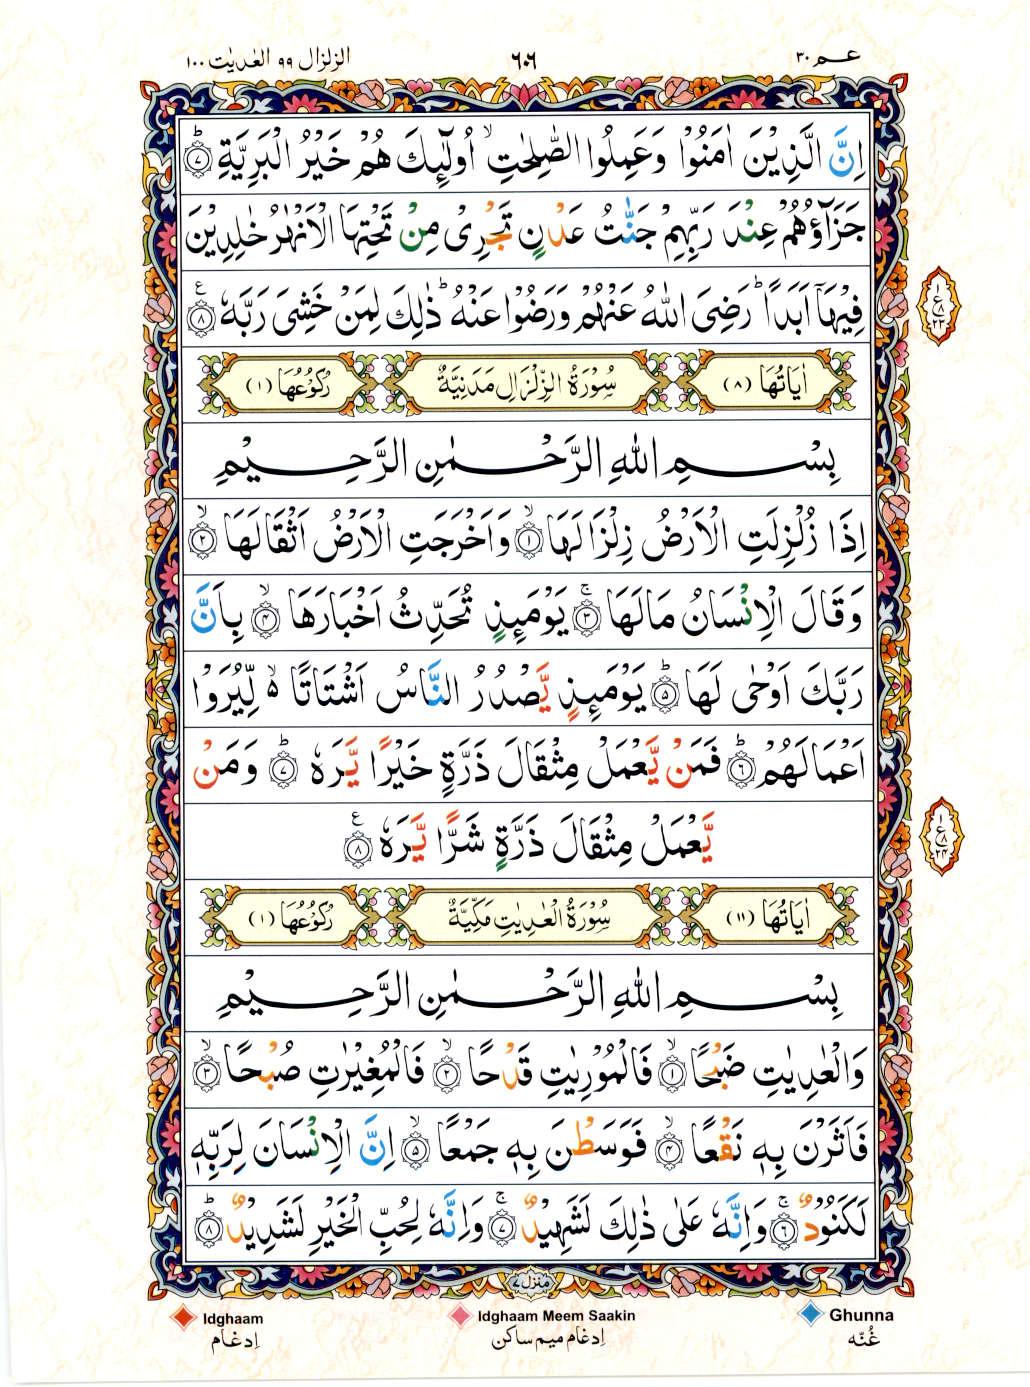 عــم ٣٠
٦٠٦
الزلزال ٩٩ العٰدیٰت ١٠٠
اِنَّ الَّذِیْنَ اٰمَنُوْا وَعَمِلُوا الصّٰلِحٰتِ ۙ اُولٰٓئِكَ هُمْ خَیْرُ الْبَرِیَّةِ ؕ ﴿۷﴾
جَزَآؤُهُمْ عِنْدَ رَبِّهِمْ جَنّٰتُ عَدْنٍ تَجْرِیْ مِنْ تَحْتِهَا الْاَنْهٰرُ خٰلِدِیْنَ
فِیْهَاۤ اَبَدًا ؕ رَضِیَ اللّٰهُ عَنْهُمْ وَرَضُوْا عَنْهُ ؕ ذٰلِكَ لِمَنْ خَشِیَ رَبَّهٗ ﴿۸﴾ ع
١ ع ٨ ٢٣
اٰیَاتُهَا (٨) سُوْرَةُ الزِّلْزَالِ مَدَنِیَّةٌ رُكُوْعُهَا (١)
بِسْمِ اللّٰهِ الرَّحْمٰنِ الرَّحِیْمِ
اِذَا زُلْزِلَتِ الْاَرْضُ زِلْزَالَهَا ۙ ﴿۱﴾ وَاَخْرَجَتِ الْاَرْضُ اَثْقَالَهَا ۙ ﴿۲﴾
وَقَالَ الْاِنْسَانُ مَالَهَا ۚ ﴿۳﴾ یَوْمَىِٕذٍ تُحَدِّثُ اَخْبَارَهَا ۙ ﴿۴﴾ بِاَنَّ
رَبَّكَ اَوْحٰی لَهَا ؕ ﴿۵﴾ یَوْمَىِٕذٍ یَّصْدُرُ النَّاسُ اَشْتَاتًا ۙ۬ لِّیُرَوْا
اَعْمَالَهُمْ ؕ ﴿۶﴾ فَمَنْ یَّعْمَلْ مِثْقَالَ ذَرَّةٍ خَیْرًا یَّرَهٗ ؕ ﴿۷﴾ وَمَنْ
یَّعْمَلْ مِثْقَالَ ذَرَّةٍ شَرًّا یَّرَهٗ ﴿۸﴾ ع
١ ع ٨ ٢٤
اٰیَاتُهَا (١١) سُوْرَةُ الْعٰدِیٰتِ مَكِّیَّةٌ رُكُوْعُهَا (١)
بِسْمِ اللّٰهِ الرَّحْمٰنِ الرَّحِیْمِ
وَالْعٰدِیٰتِ ضَبْحًا ۙ ﴿۱﴾ فَالْمُوْرِیٰتِ قَدْحًا ۙ ﴿۲﴾ فَالْمُغِیْرٰتِ صُبْحًا ۙ ﴿۳﴾
فَاَثَرْنَ بِهٖ نَقْعًا ۙ ﴿۴﴾ فَوَسَطْنَ بِهٖ جَمْعًا ۙ ﴿۵﴾ اِنَّ الْاِنْسَانَ لِرَبِّهٖ
لَكَنُوْدٌ ۚ ﴿۶﴾ وَاِنَّهٗ عَلٰی ذٰلِكَ لَشَهِیْدٌ ۚ ﴿۷﴾ وَاِنَّهٗ لِحُبِّ الْخَیْرِ لَشَدِیْدٌ ؕ ﴿۸﴾
منزل ٧
Idghaam Idghaam Meem Saakin Ghunna
اِدغام اِدغام میم ساکن غُنّه